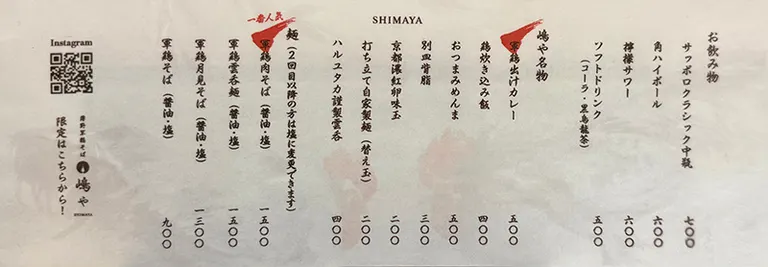 SHIMAYA
お飲み物
サッポロクラシック中瓶 七〇〇
角ハイボール 六〇〇
檸檬サワー 六〇〇
ソフトドリンク 五〇〇
(コーラ・黒烏龍茶)
嶋や名物
軍鶏出汁カレー 五〇〇
鶏炊き込み飯 四〇〇
おつまみめんま 五〇〇
別皿背脂 三〇〇
京都濃紅卵味玉 二〇〇
打ち立て自家製麺(替え玉) 二〇〇
ハルユタカ謹製雲呑 四〇〇
麺(2回目以降の方は塩に変更できます)
一番人気
軍鶏肉そば(醤油・塩) 一五〇〇
軍鶏雲呑麺(醤油・塩) 一五〇〇
軍鶏月見そば(醤油・塩) 一三〇〇
軍鶏そば(醤油・塩) 九〇〇
Instagram
嶋や
SHIMAYA
限定はこちらから!